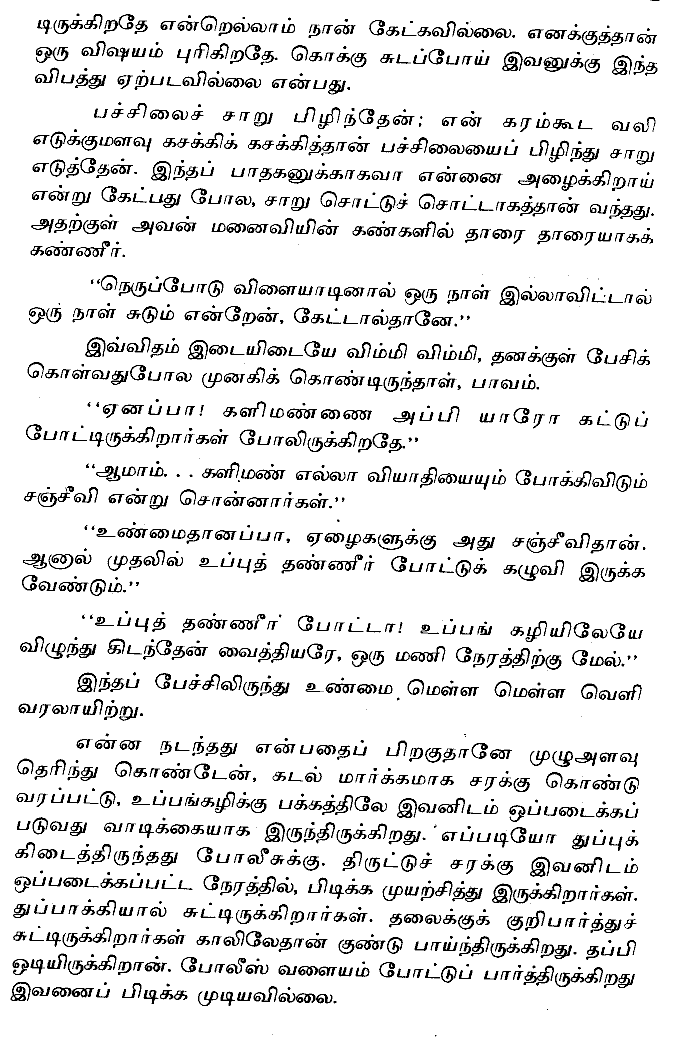 டிருக்கிறதே என்றெல்லாம் நான் கேட்கவில்லை. எனக்குத்தான்
ஒரு விஷயம் புரிகிறதே. கொக்கு சுடப்போய் இவனுக்கு இந்த
விபத்து ஏற்படவில்லை என்பது.
பச்சிலைச் சாறு பிழிந்தேன்; என் கரம்கூட வலி
எடுக்குமளவு கசக்கிக் கசக்கித்தான் பச்சிலையைப் பிழிந்து சாறு
எடுத்தேன். இந்தப் பாதகனுக்காகவா என்னை அழைக்கிறாய்
என்று கேட்பது போல, சாறு சொட்டுச் சொட்டாகத்தான் வந்தது.
அதற்குள் அவன் மனைவியின் கண்களில் தாரை தாரையாகக்
கண்ணீர்.
‘‘நெருப்போடு விளையாடினால் ஒரு நாள் இல்லாவிட்டால்
ஒரு நாள் சுடும் என்றேன், கேட்டால்தானே.’’
இவ்விதம் இடையிடையே விம்மி விம்மி, தனக்குள் பேசிக்
கொள்வதுபோல முனகிக் கொண்டிருந்தாள், பாவம்.
‘‘ஏனப்பா! களிமண்ணை அப்பி யாரோ கட்டுப்
போட்டிருக்கிறார்கள் போலிருக்கிறதே.’’
‘‘ஆமாம். . . களிமண் எல்லா வியாதியையும் போக்கிவிடும்
சஞ்சீவி என்று சொன்னார்கள்.’’
‘‘உண்மைதானப்பா, ஏழைகளுக்கு அது சஞ்சீவிதான்.
ஆனால் முதலில் உப்புத் தண்ணீர் போட்டுக் கழுவி இருக்க
வேண்டும்.’’
‘‘உப்புத் தண்ணீர் போட்டா! உப்பங் கழியிலேயே
விழுந்து கிடந்தேன் வைத்தியரே, ஒரு மணி நேரத்திற்கு மேல்.’’
இந்தப் பேச்சிலிருந்து உண்மை மெள்ள மெள்ள வெளி
வரலாயிற்று.
என்ன நடந்தது என்பதைப் பிறகுதானே முழுஅளவு
தெரிந்து கொண்டேன், கடல் மார்க்கமாக சரக்கு கொண்டு
வரப்பட்டு, உப்பங்கழிக்கு பக்கத்திலே இவனிடம் ஒப்படைக்கப்
படுவது வாடிக்கையாக இருந்திருக்கிறது. எப்படியோ துப்புக்
கிடைத்திருந்தது போலீசுக்கு. திருட்டுச் சரக்கு இவனிடம்
ஒப்படைக்கப்பட்ட நேரத்தில், பிடிக்க முயற்சித்து இருக்கிறார்கள்.
துப்பாக்கியால் சுட்டிருக்கிறார்கள். தலைக்குக் குறிபார்த்துச்
சுட்டிருக்கிறார்கள் காலிலேதான் குண்டு பாய்ந்திருக்கிறது. தப்பி
ஒடியிருக்கிறான். போலீஸ் வளையம் போட்டுப் பார்த்திருக்கிறது
இவனைப் பிடிக்க முடியவில்லை.